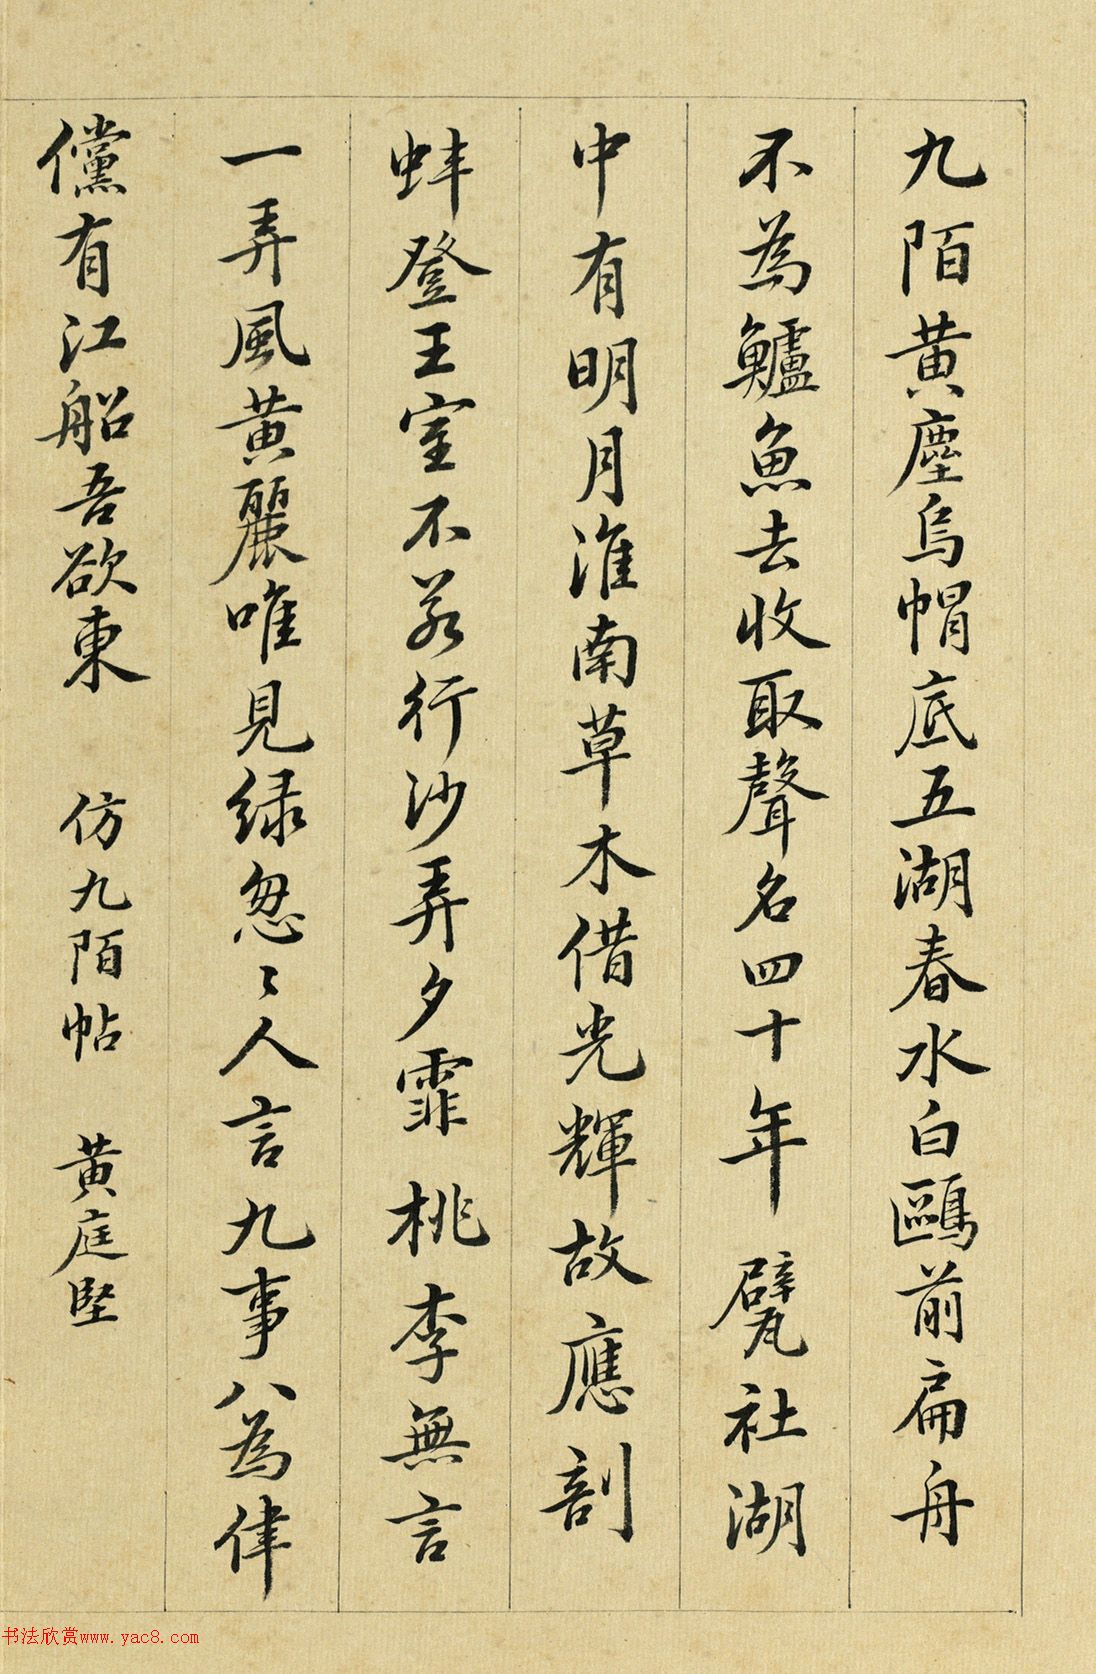 九陌黄塵烏帽底五湖春水白鷗前扁舟
不為鱸魚去收取聲名四十年 甓社湖
中有明月淮南草木借光輝故應剖
蚌登王室不若行沙弄夕霏 桃李無言
一弄風黄麗唯見緑怱〻人言九事八為律
儻有江船吾欲東 仿九陌帖 黄庭堅
书法欣赏www.yac8.com